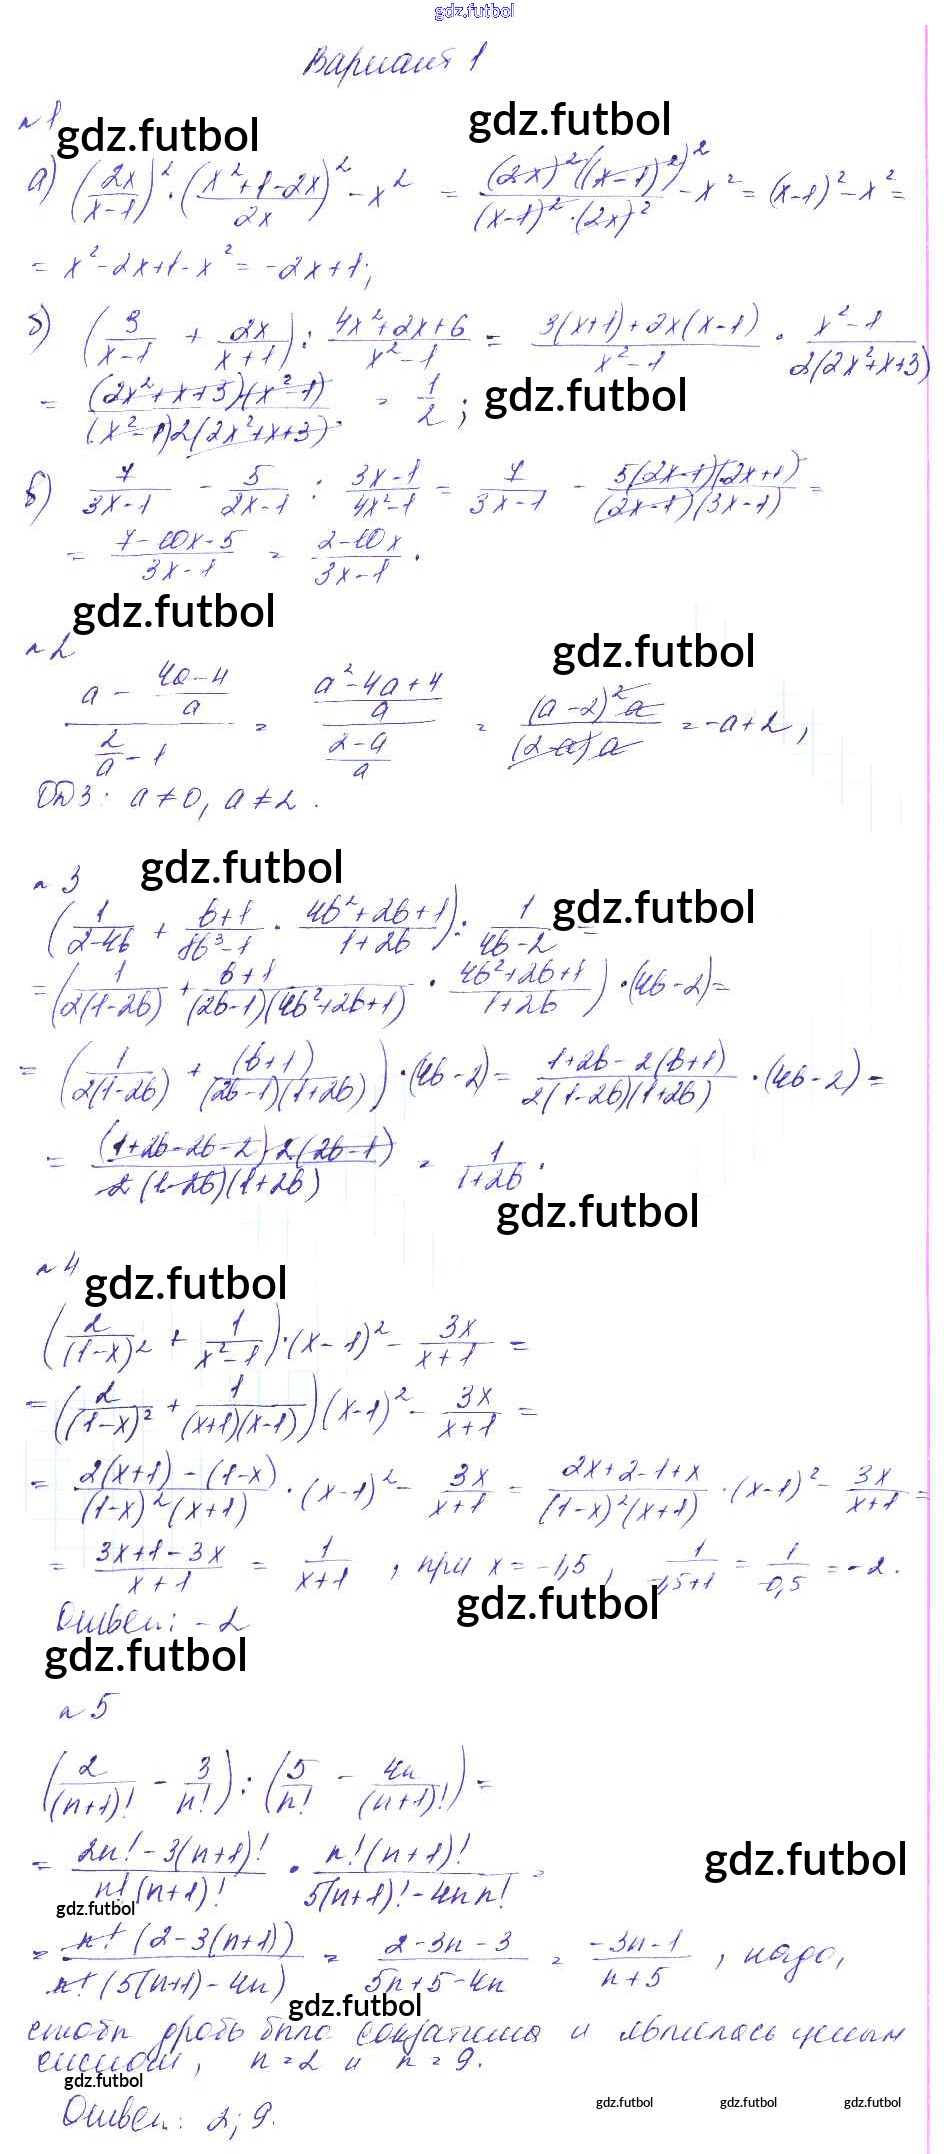 gdz.futbol
Вариант 1
№1
gdz.futbol
gdz.futbol
а) (2x/(x-1))² · ((x²+1-2x)/2x)² - x² = (2x)²((x-1)²)²/((x-1)²·(2x)²) - x² = (x-1)² - x² =
= x²-2x+1-x² = -2x+1;
б) (3/(x-1) + 2x/(x+1)) : (4x²+2x+6)/(x²-1) = (3(x+1)+2x(x-1))/(x²-1) · (x²-1)/(2(2x²+x+3))
= (2x²+x+3)(x²-1)/((x²-1)2(2x²+x+3)) = 1/2;
gdz.futbol
в) 7/(3x-1) - 5/(2x-1) : (3x-1)/(4x²-1) = 7/(3x-1) - 5(2x-1)(2x+1)/((2x-1)(3x-1)) =
= (7-10x-5)/(3x-1) = (2-10x)/(3x-1).
gdz.futbol
№2
gdz.futbol
(a - (4a-4)/a)/(2/a - 1) = ((a²-4a+4)/a)/((2-a)/a) = (a-2)²a/((2-a)a) = -a+2,
ОДЗ: a≠0, a≠2.
№3
gdz.futbol
gdz.futbol
(1/(2-4b) + (b+1)/(8b³-1) · (4b²+2b+1)/(1+2b)) : 1/(4b-2) =
= (1/(2(1-2b)) + (b+1)/((2b-1)(4b²+2b+1)) · (4b²+2b+1)/(1+2b)) · (4b-2) =
= (1/(2(1-2b)) + (b+1)/((2b-1)(1+2b))) · (4b-2) = (1+2b-2(b+1))/(2(1-2b)(1+2b)) · (4b-2) =
= (1+2b-2b-2)2(2b-1)/(2(1-2b)(1+2b)) = 1/(1+2b).
gdz.futbol
№4
gdz.futbol
(2/(1-x)² + 1/(x²-1)) · (x-1)² - 3x/(x+1) =
= (2/(1-x)² + 1/((x+1)(x-1)))(x-1)² - 3x/(x+1) =
= (2(x+1)-(1-x))/((1-x)²(x+1)) · (x-1)² - 3x/(x+1) = (2x+2-1+x)/((1-x)²(x+1)) · (x-1)² - 3x/(x+1) =
= (3x+1-3x)/(x+1) = 1/(x+1), при x = -1,5, 1/(-1,5+1) = 1/-0,5 = -2.
gdz.futbol
Ответ: -2
gdz.futbol
№5
(2/(n+1)! - 3/n!) : (5/n! - 4n/(n+1)!) =
= (2n!-3(n+1)!)/(n!(n+1)!) · n!(n+1)!/(5(n+1)!-4n n!) =
gdz.futbol
gdz.futbol
= n!(2-3(n+1))/(n!(5(n+1)-4n)) = (2-3n-3)/(5n+5-4n) = (-3n-1)/(n+5), надо,
gdz.futbol
чтобы дробь была сократима и являлась целым
числом, n=2 и n=9.
gdz.futbol
Ответ: 2; 9.
gdz.futbol
gdz.futbol
gdz.futbol